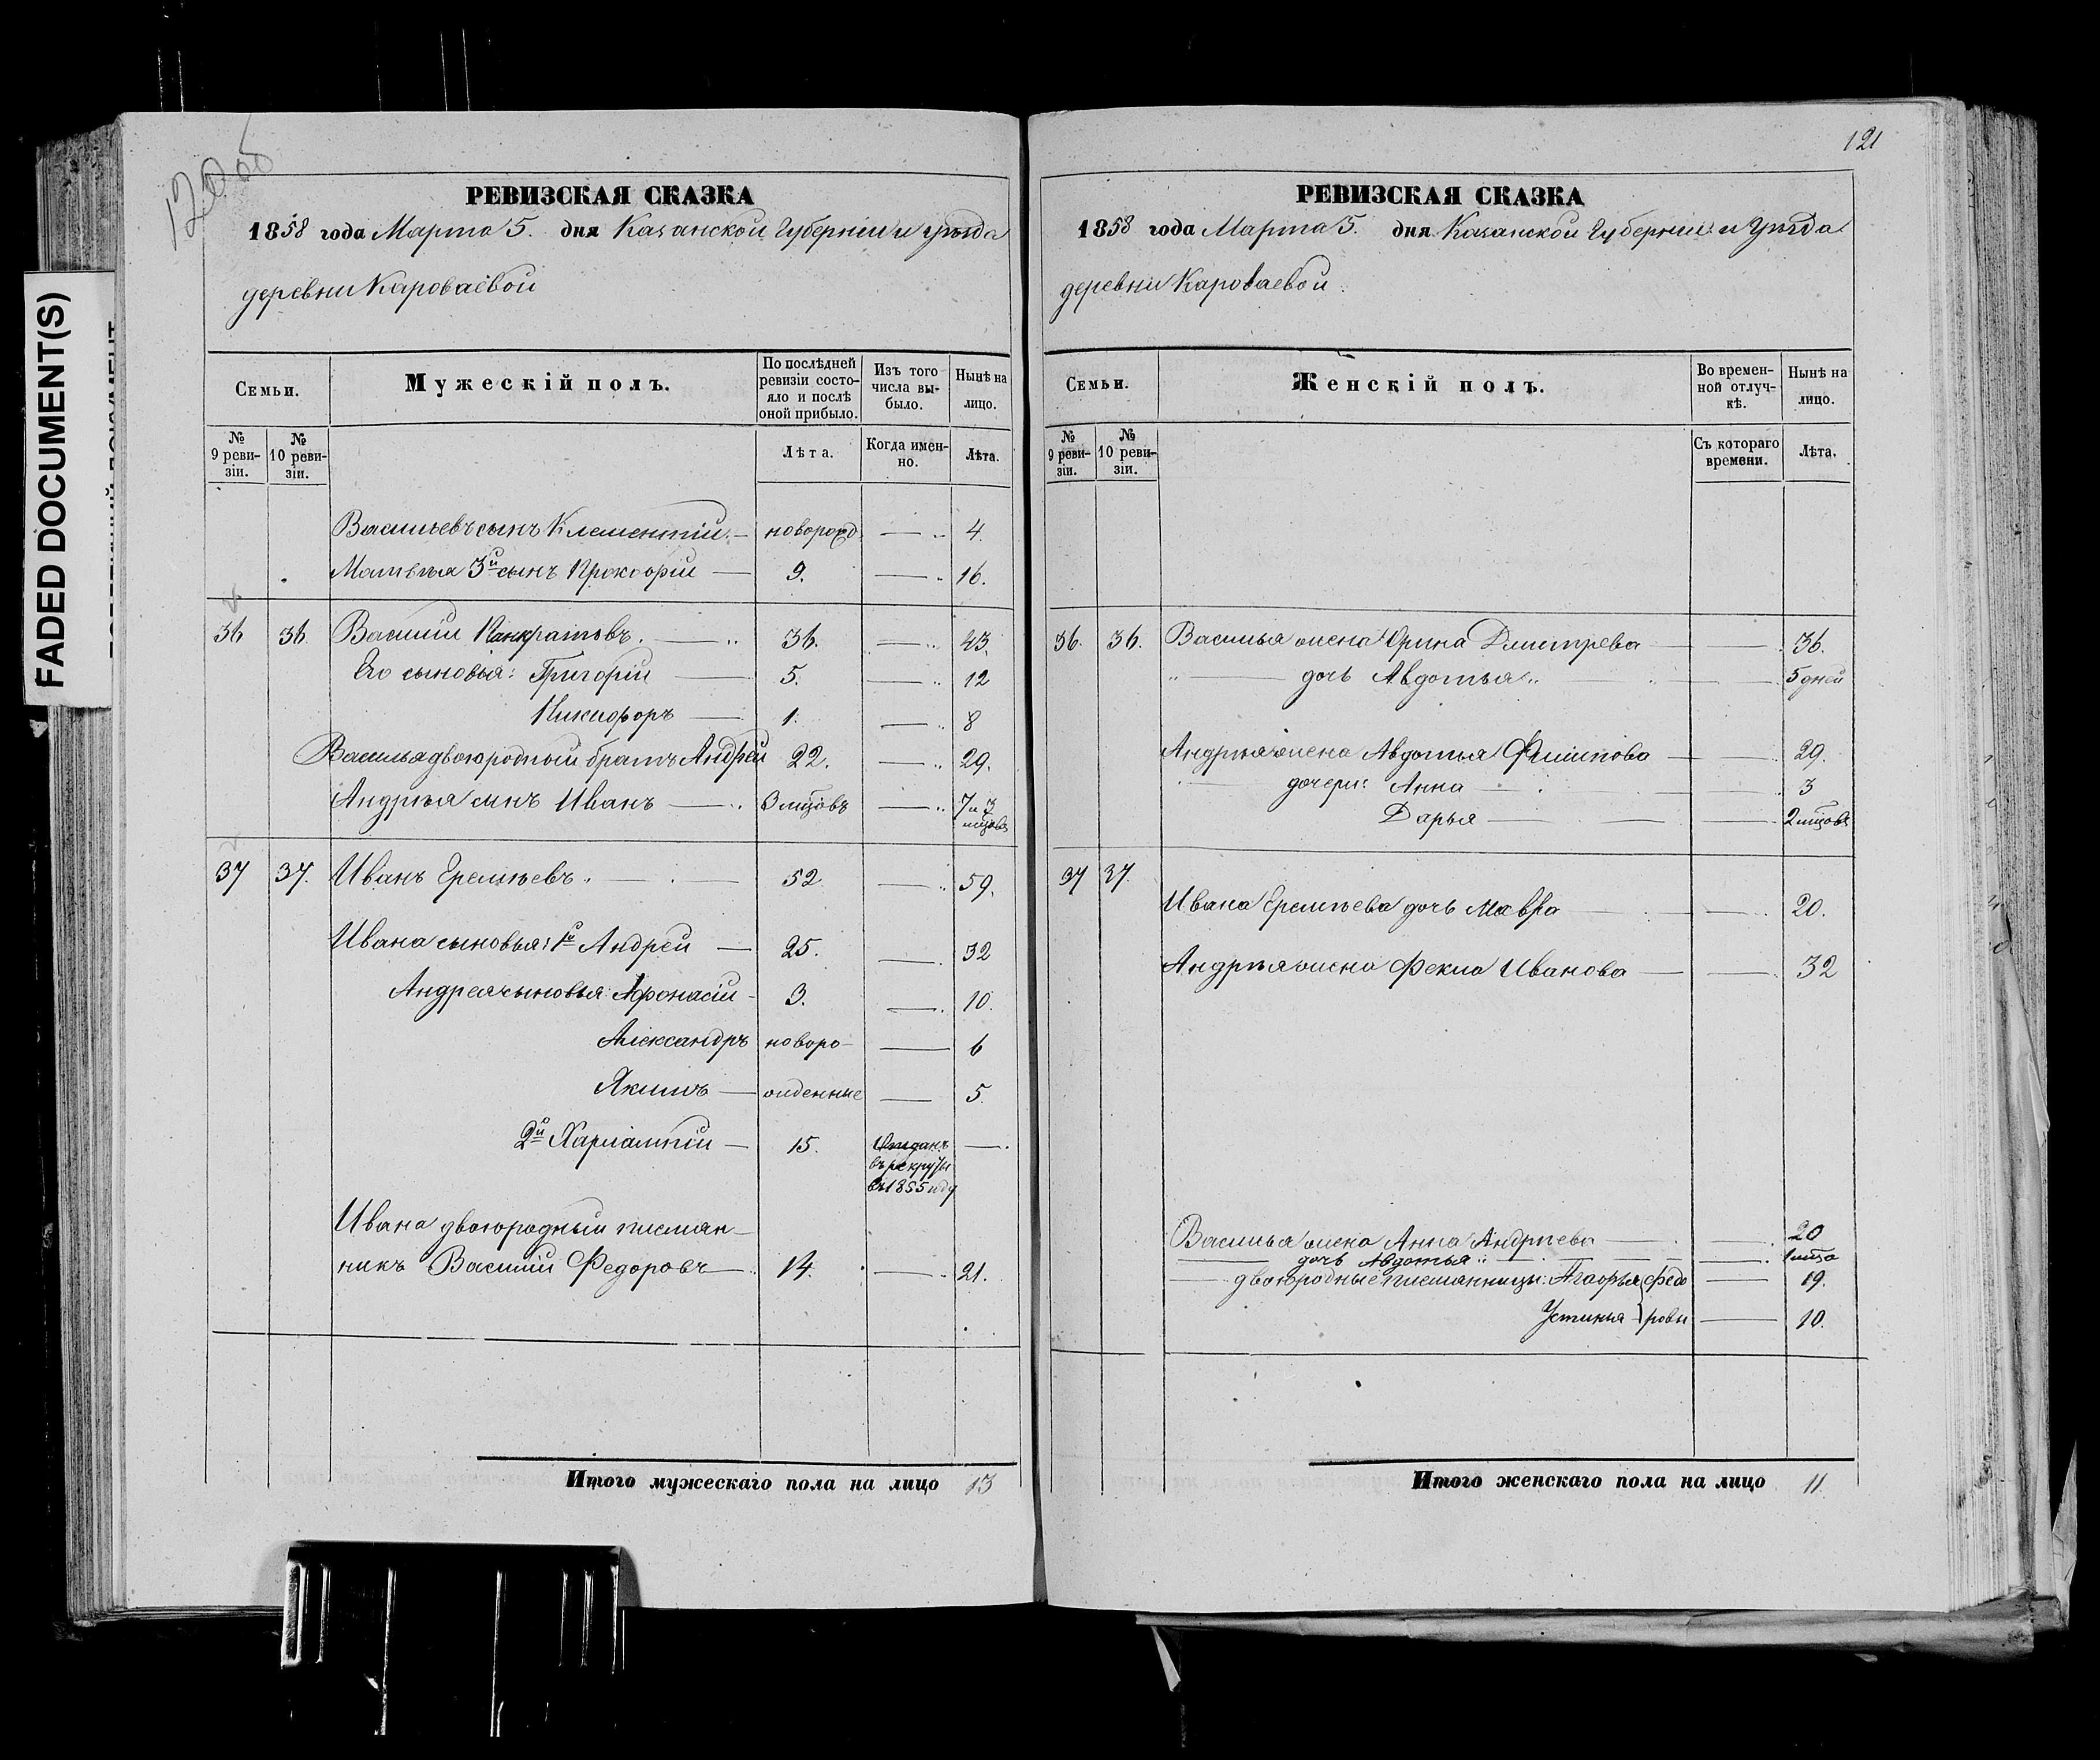 120об
FADED DOCUMENT(S)
РЕВИЗСКАЯ СКАЗКА
1858 года Марта 5. дня Казанской Губернии и уѣзда
деревни Кароваевой
Семьи.
Мужескій полъ.
По послѣдней ревизіи состояло и послѣ оной прибыло.
Изъ того числа выбыло.
Нынѣ на лицо.
№ 9 ревизіи.
№ 10 ревизіи.
Лѣта.
Когда именно.
Лѣта.
Васильевъ сынъ Клементій — новорожд — 4.
Матвѣя 3й сынъ Прокофій — 9. — 16.
36 36 Василій Панкратовъ. — 36. — 43.
Его сыновья: Григорій — 5. — 12
Никифоръ — 1. — 8
Василья двоюродный братъ Андрей 22. — 29.
Андрѣя сынъ Иванъ — 3 мцовъ — 7 и 3 мцовъ
37 37. Иванъ Еремѣевъ. — 52 — 59.
Ивана сыновья: 1й Андрей — 25. — 32
Андрея сыновья: Афонасій - 3. — 10.
Александръ новоро- — 6
Якимъ — жденные — 5.
2й Харлампій — 15. Отданъ —
въ рекруты
въ 1855 году
Ивана двоюродный племян-
никъ Василій Федоровъ — 14. — 21.
Итого мужескаго пола на лицо 13
121
РЕВИЗСКАЯ СКАЗКА
1858 года Марта 5. дня Казанской Губернии и Уѣзда
деревни Кароваевой
Семьи.
Женскій полъ.
Во временной отлучкѣ.
Нынѣ на лицо.
№ 9 ревизіи.
№ 10 ревизіи.
Съ котораго времени.
Лѣта.
36. 36. Василья жена Орина Дмитрева — 36.
" — дочь Авдотья " — 5 дней
Андрѣя жена Авдотья Филипова — 29.
дочери: Анна — 3
Дарья — 2 мцовъ
37 37.
Ивана Еремѣева дочь Мавра — 20.
Андрѣя жена Фекла Иванова — 32
Василья жена Анна Андрѣева — 20
дочь Авдотья " — 1 мца
двоюродные племянницы: Агафья } Федо — 19.
Устинья } ровы — 10.
Итого женскаго пола на лицо 11